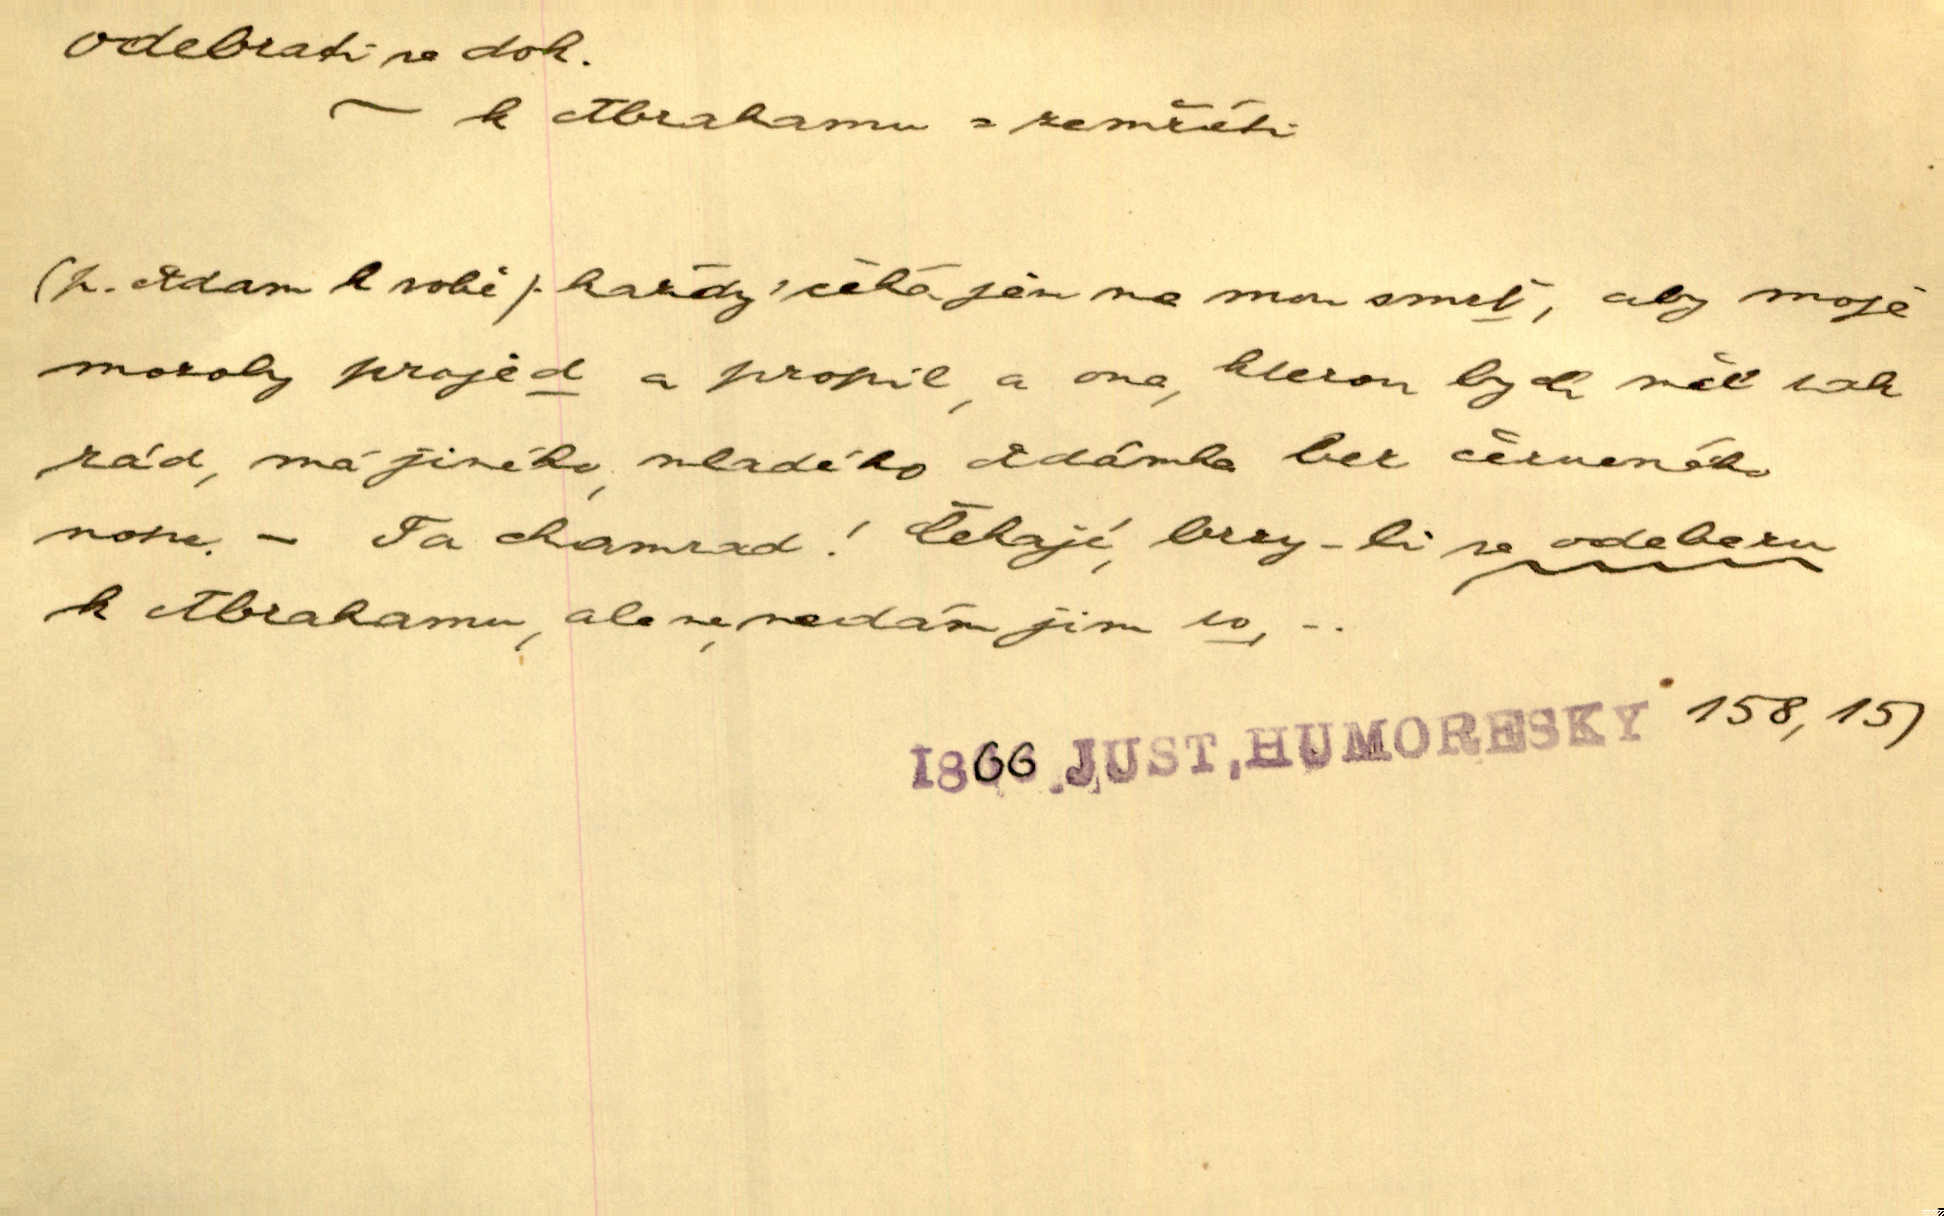 odebrati se dok.
~ k Abrahamu = zemříti
(p. Adam k sobě). každý čeká jen na mou smrť, aby moje
mozoly projed a propil, a ona, kterou bych měl tak
rád, má jiného, mladého Adámka bez červeného
nosu. – Ta chamrad! Čekají, brzy-li se odeberu
k Abrahamu, ale ne, nedám jim to, –.
1866 JUST, HUMORESKY 158, 15)